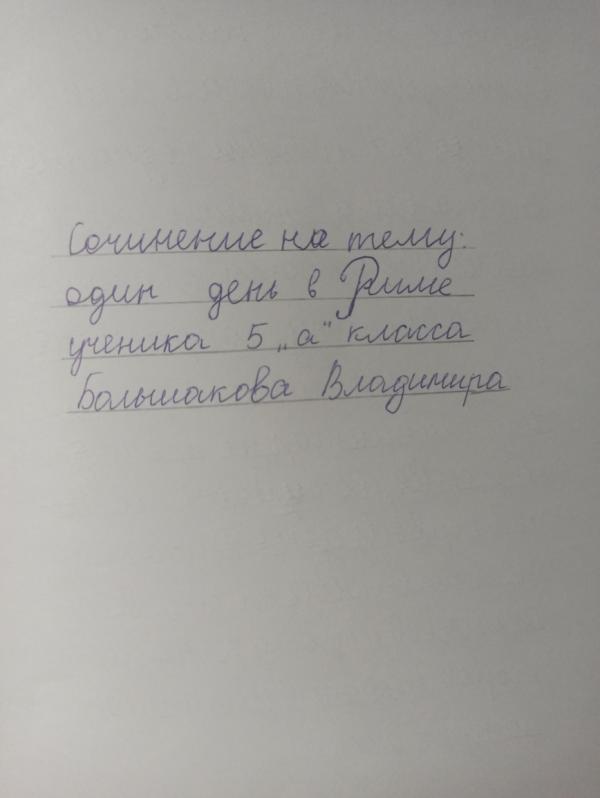 Сочинение на тему:
один день в Риме
ученика 5 „а" класса
Большакова Владимира